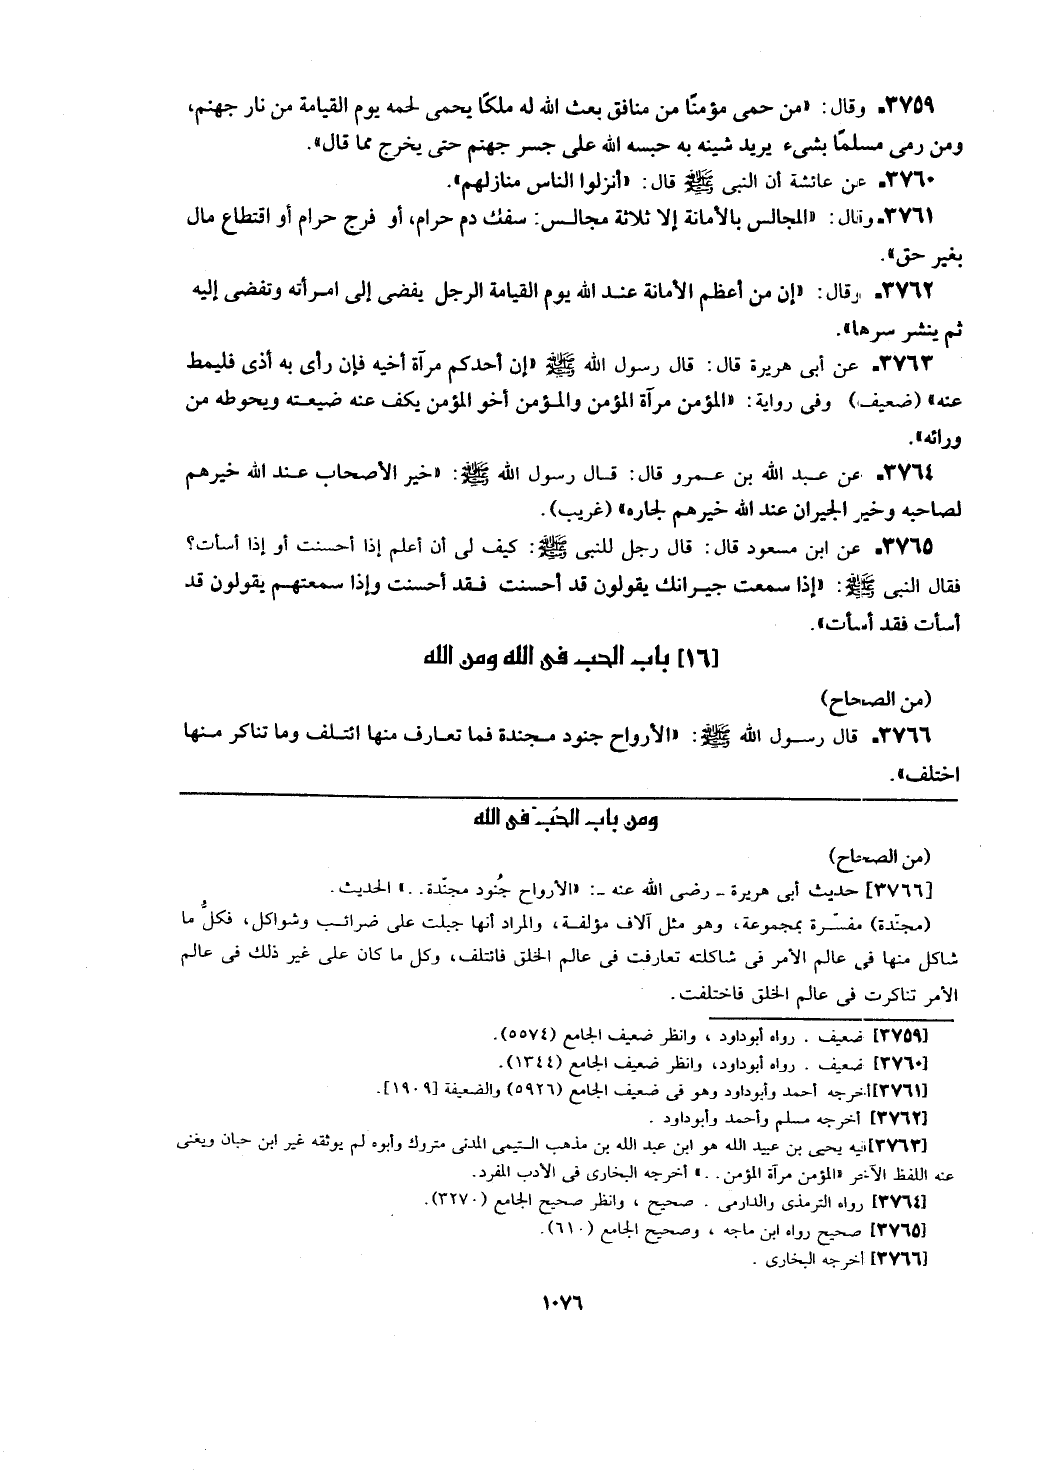 ٣٧٥٩ـ وقال: «من حمى مؤمنًا من منافق بعث الله له ملكًا يحمى لحمه يوم القيامة من نار جهنم،
ومن رمى مسلمًا بشىء يريد شينه به حبسه الله على جسر جهنم حتى يخرج مما قال».
٣٧٦٠ـ عن عائشة أن النبى ﷺ قال: «أنزلوا الناس منازلهم».
٣٧٦١ـ وقال: «المجالس بالأمانة إلا ثلاثة مجالس: سفك دم حرام، أو فرج حرام أو اقتطاع مال
بغير حق».
٣٧٦٢ـ وقال: «إن من أعظم الأمانة عند الله يوم القيامة الرجل يفضى إلى امرأته وتفضى إليه
ثم ينشر سرها».
٣٧٦٣ـ عن أبى هريرة قال: قال رسول الله ﷺ «إن أحدكم مرآة أخيه فإن رأى به أذى فليمط
عنه» (ضعيف) وفى رواية: «المؤمن مرآة المؤمن والمؤمن أخو المؤمن يكف عنه ضيعته ويحوطه من
ورائه».
٣٧٦٤ـ عن عبد الله بن عمرو قال: قال رسول الله ﷺ: «خير الأصحاب عند الله خيرهم
لصاحبه وخير الجيران عند الله خيرهم لجاره» (غريب).
٣٧٦٥ـ عن ابن مسعود قال: قال رجل للنبى ﷺ: كيف لى أن أعلم إذا أحسنت أو إذا أسأت؟
فقال النبى ﷺ: «إذا سمعت جيرانك يقولون قد أحسنت فقد أحسنت وإذا سمعتهم يقولون قد
أسأت فقد أسأت».
[١٦] باب الحب فى الله ومن الله
(من الصحاح)
٣٧٦٦ـ قال رسول الله ﷺ: «الأرواح جنود مجندة فما تعارف منها ائتلف وما تناكر منها
اختلف».
ومن باب الحُب فى الله
(من الصحاح)
[٣٧٦٦] حديث أبى هريرة ـ رضى الله عنه ـ: «الأرواح جُنود مجنّدة..» الحديث.
(مجنّدة) مفسّرة بمجموعة، وهو مثل آلاف مؤلفة، والمراد أنها جبلت على ضرائب وشواكل، فكلُّ ما
شاكل منها فى عالم الأمر فى شاكلته تعارفت فى عالم الخلق فائتلف، وكل ما كان على غير ذلك فى عالم
الأمر تناكرت فى عالم الخلق فاختلفت.
[٣٧٥٩] ضعيف . رواه أبوداود ، وانظر ضعيف الجامع (٥٥٧٤).
[٣٧٦٠] ضعيف . رواه أبوداود، وانظر ضعيف الجامع (١٣٤٤).
[٣٧٦١] أخرجه أحمد وأبوداود وهو فى ضعيف الجامع (٥٩٢٦) والضعيفة [١٩٠٩].
[٣٧٦٢] أخرجه مسلم وأحمد وأبوداود .
[٣٧٦٣] فيه يحيى بن عبيد الله هو ابن عبد الله بن مذهب التيمى المدنى متروك وأبوه لم يوثقه غير ابن حبان ويغنى
عنه اللفظ الآخر «المؤمن مرآة المؤمن..» أخرجه البخارى فى الأدب المفرد.
[٣٧٦٤] رواه الترمذى والدارمى . صحيح ، وانظر صحيح الجامع (٣٢٧٠).
[٣٧٦٥] صحيح رواه ابن ماجه ، وصحيح الجامع (٦١٠).
[٣٧٦٦] أخرجه البخارى .
١٠٧٦